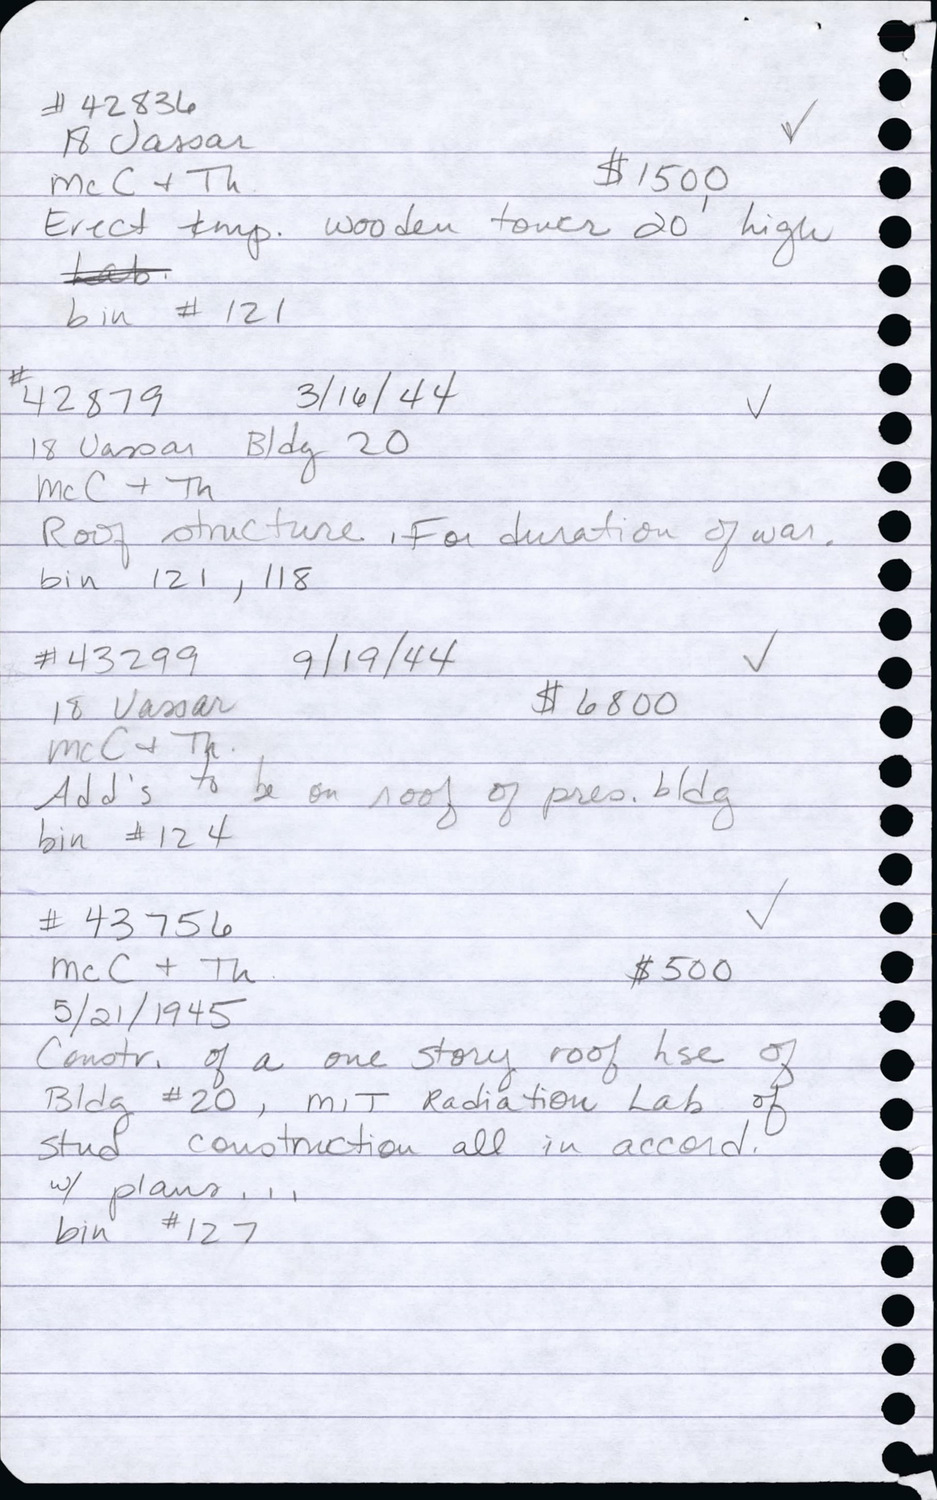 # 42836 ✓
18 Vassar
McC + Th $1500
Erect temp. wooden tower 20' high
~~Lab.~~
bin # 121
#42879 3/16/44 ✓
18 Vassar Bldg 20
McC + Th
Roof structure. For duration of war.
bin 121, 118
#43299 9/19/44 ✓
18 Vassar $6800
McC + Th.
Add's to be on roof of pres. bldg
bin #124
# 43756 ✓
McC + Th. $500
5/21/1945
Constr. of a one story roof hse of
Bldg #20, MIT Radiation Lab of
stud construction all in accord.
w/ plans...
bin #127